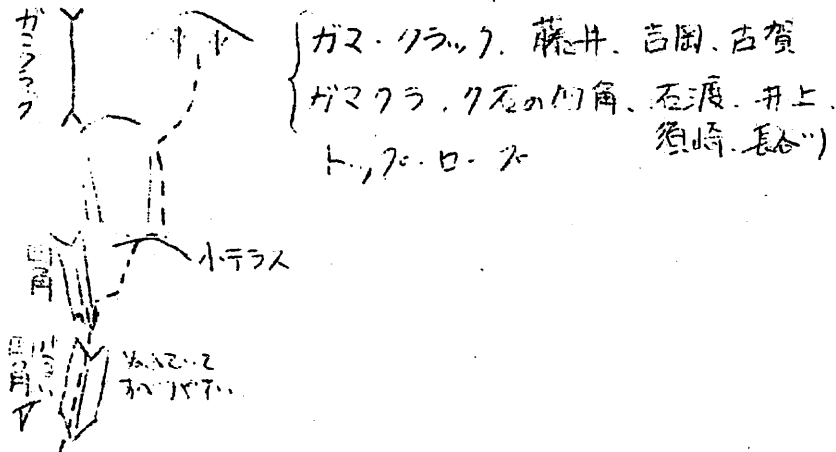 ガマクラック
ガマ・クラック、藤井、吉岡、古賀
ガマクラ、クの凹角、石渡、井上、
須崎、長谷川
トップ・ロープ
小テラス
凹角
凹角 Ⅴ
ぬれていて
すべりやすい